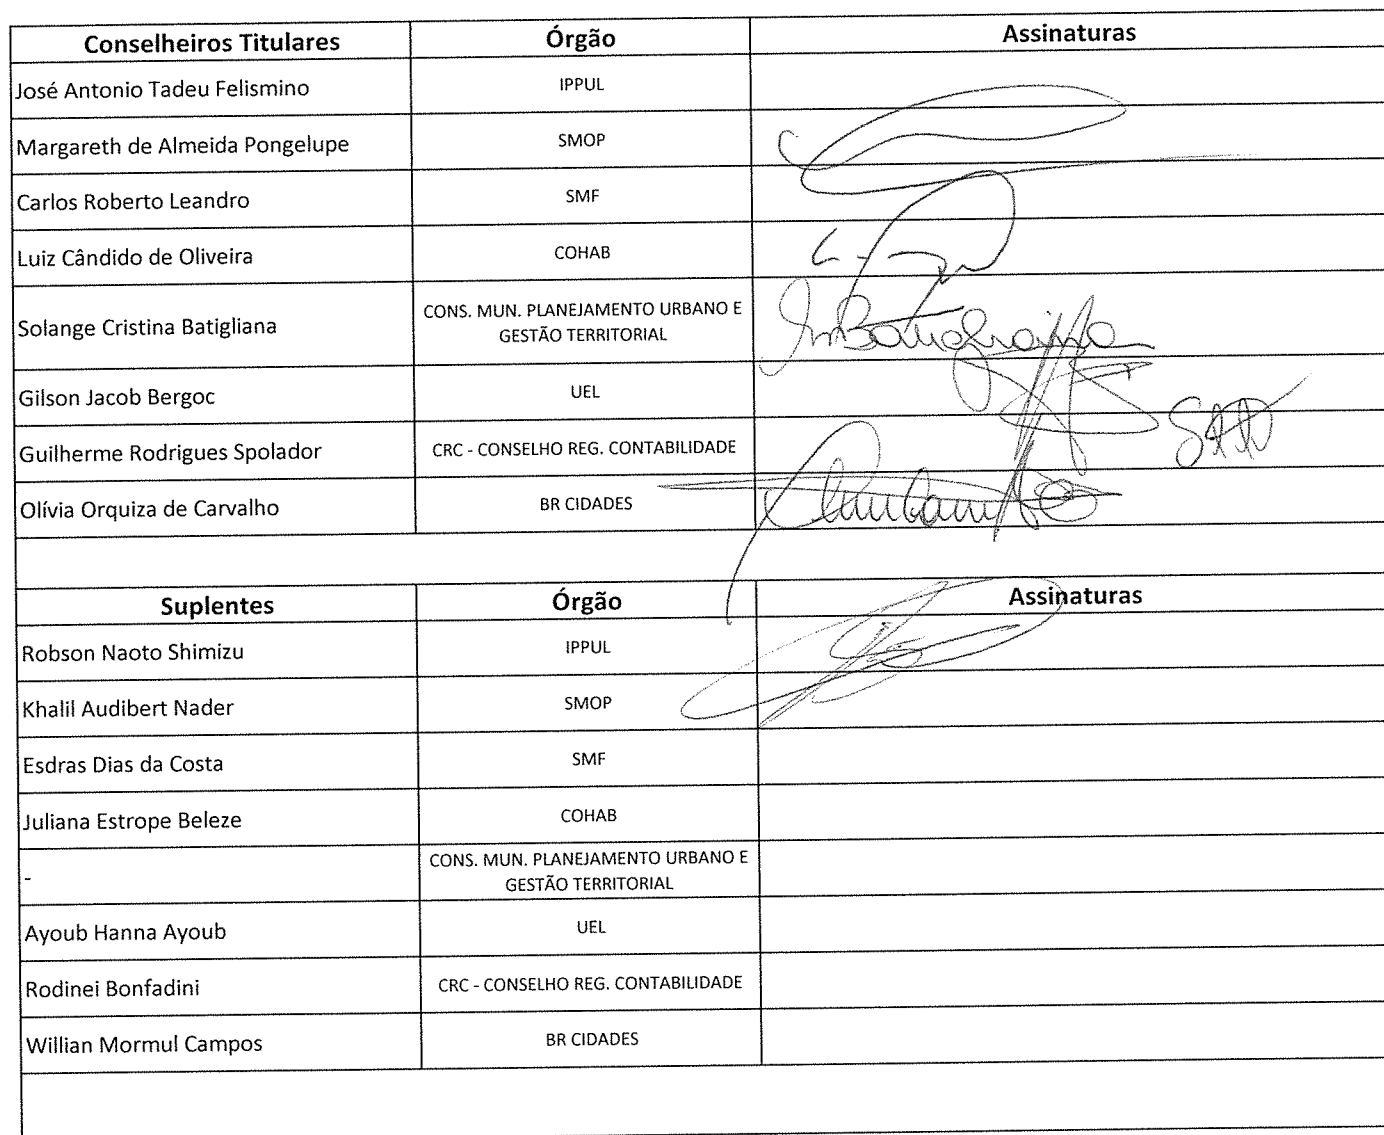 Conselheiros Titulares Órgão Assinaturas
José Antonio Tadeu Felismino IPPUL
Margareth de Almeida Pongelupe SMOP
Carlos Roberto Leandro SMF
Luiz Cândido de Oliveira COHAB
Solange Cristina Batigliana CONS. MUN. PLANEJAMENTO URBANO E
GESTÃO TERRITORIAL
Gilson Jacob Bergoc UEL
Guilherme Rodrigues Spolador CRC - CONSELHO REG. CONTABILIDADE
Olívia Orquiza de Carvalho BR CIDADES
Suplentes Órgão Assinaturas
Robson Naoto Shimizu IPPUL
Khalil Audibert Nader SMOP
Esdras Dias da Costa SMF
Juliana Estrope Beleze COHAB
- CONS. MUN. PLANEJAMENTO URBANO E
GESTÃO TERRITORIAL
Ayoub Hanna Ayoub UEL
Rodinei Bonfadini CRC - CONSELHO REG. CONTABILIDADE
Willian Mormul Campos BR CIDADES